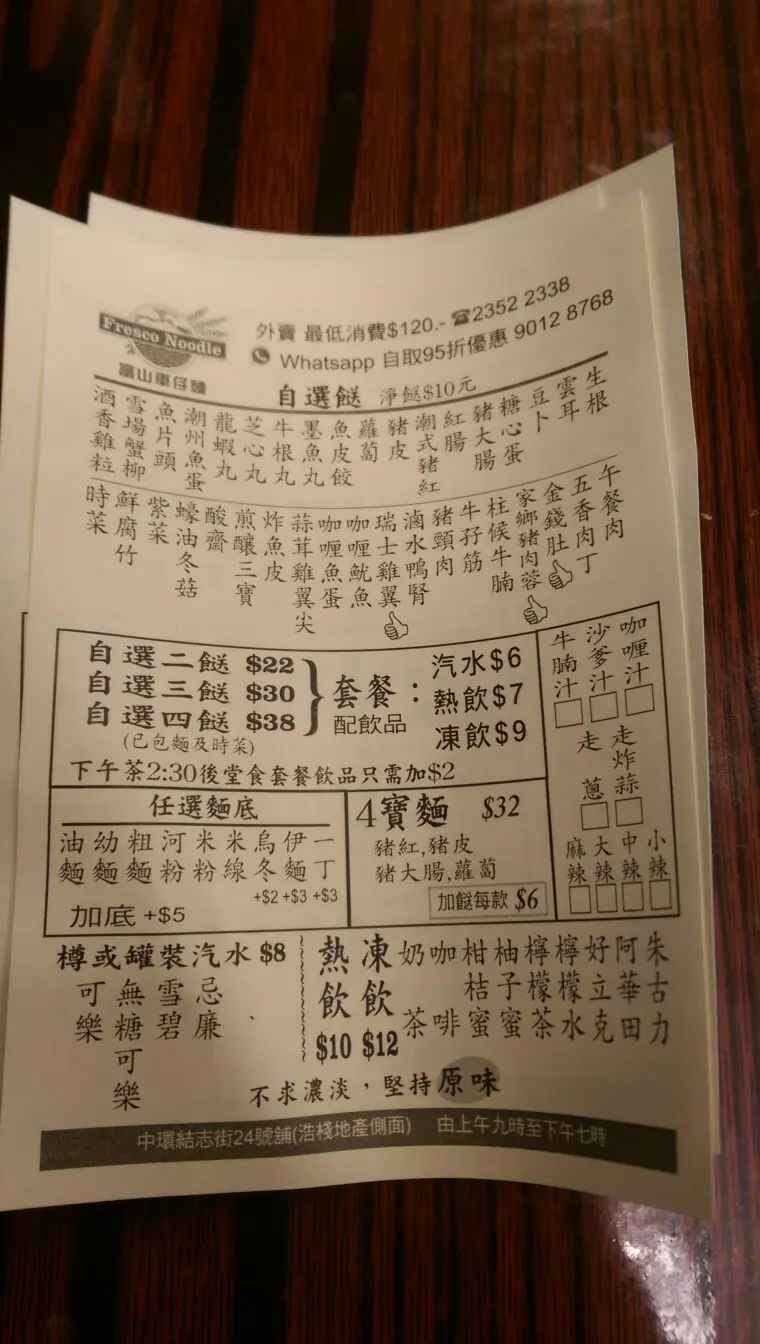 Fresco Noodle
富山車仔麵
外賣 最低消費$120.- ☎2352 2338
Whatsapp 自取95折優惠 9012 8768
自選餸 淨餸$10元
酒香雞粒 雪場蟹柳 魚片頭 潮州魚蛋 龍蝦丸 芝心丸 牛根丸 墨魚丸 魚皮餃 蘿蔔 豬皮 潮式豬紅 紅腸 豬大腸 糖心蛋 豆卜 雲耳 生根
時菜 鮮腐竹 紫菜 蠔油冬菇 酸齋 煎釀三寶 炸魚皮 蒜茸雞翼尖 咖喱魚蛋 咖喱魷魚 瑞士雞翼 滷水鴨腎 豬頸肉 牛孖筋 柱候牛腩 家鄉豬肉蓉 金錢肚 五香肉丁 午餐肉
自選二餸 $22
自選三餸 $30
自選四餸 $38
(已包麵及時菜)
套餐：
配飲品
汽水$6
熱飲$7
凍飲$9
下午茶2:30後堂食套餐飲品只需加$2
牛腩汁 沙爹汁 咖喱汁
走蔥 走炸蒜
麻辣 大辣 中辣 小辣
任選麵底
油麵 幼麵 粗麵 河粉 米粉 米線 烏冬 伊麵 一丁
+$2 +$3 +$3
加底 +$5
4寶麵 $32
豬紅,豬皮
豬大腸,蘿蔔
加餸每款 $6
樽或罐裝汽水 $8
可樂 無糖可樂 雪碧 忌廉
熱飲 $10 凍飲 $12
奶茶 咖啡 柑桔蜜 柚子蜜 檸檬茶 檸檬水 好立克 阿華田 朱古力
不求濃淡，堅持原味
中環結志街24號舖(浩棧地產側面) 由上午九時至下午七時